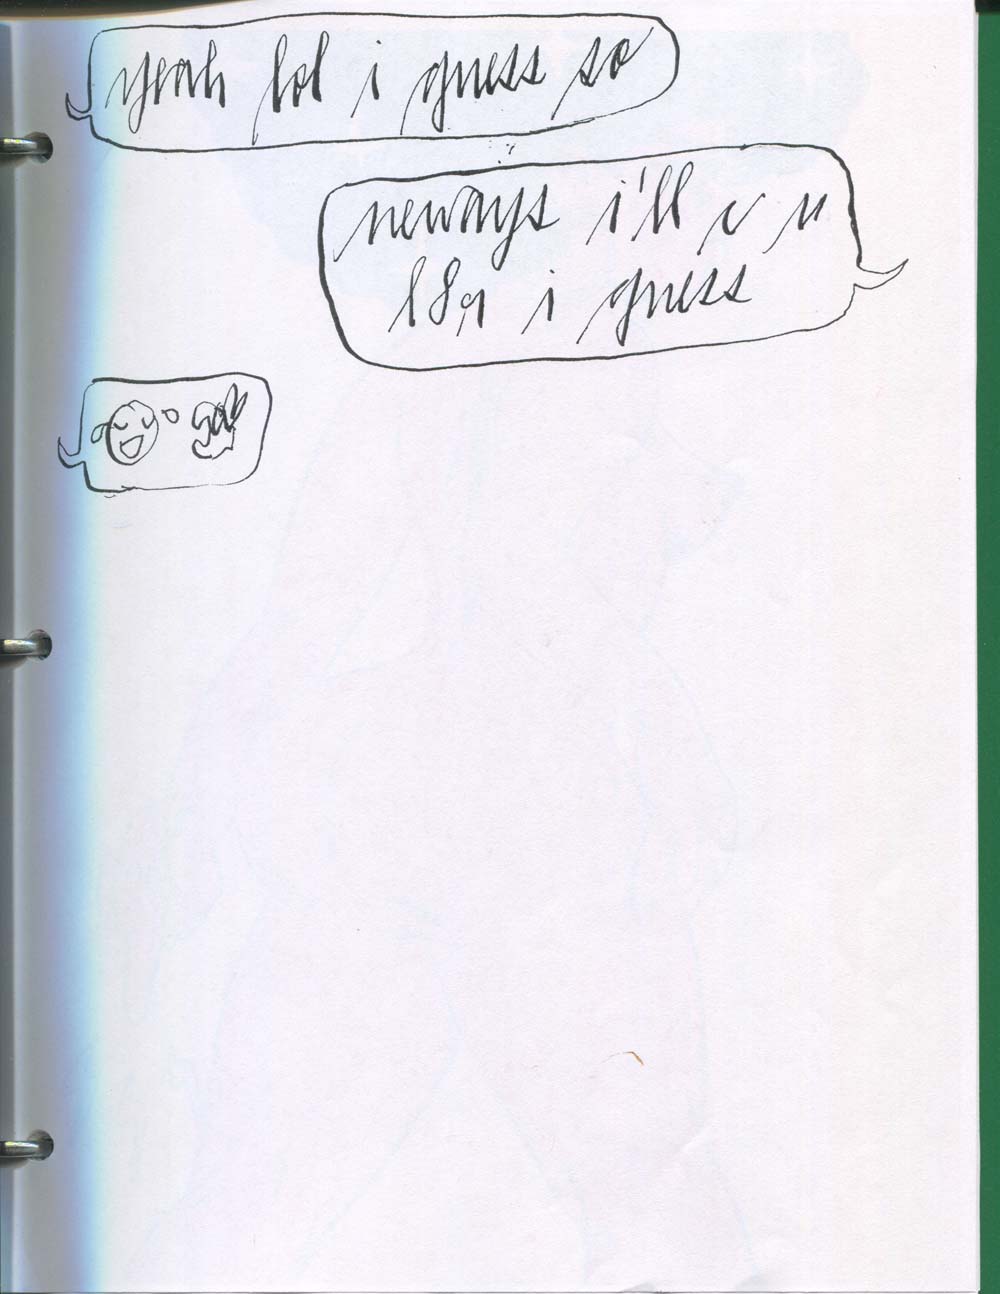 yeah lol i guess so
neways i'll c u
l8r i guess